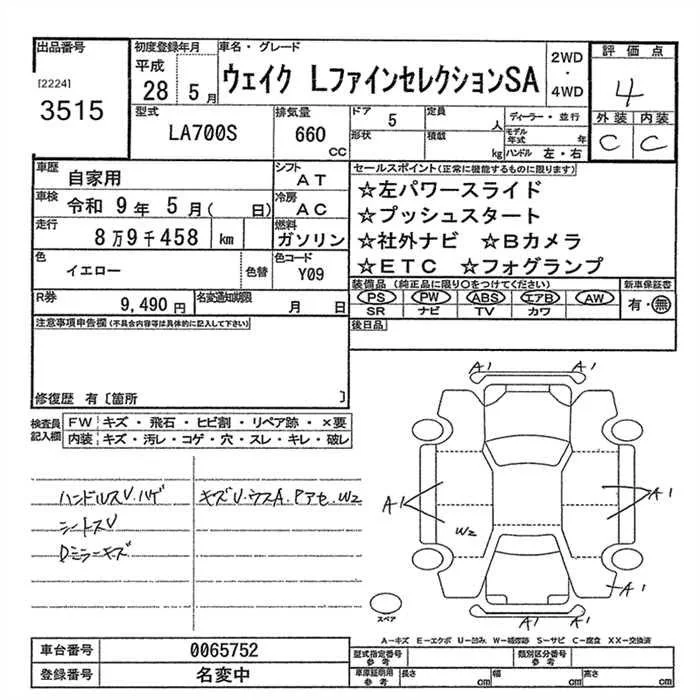 出品番号
[2224]
3515
初度登録年月
平成
28 5月
車名・グレード
ウェイク LファインセレクションSA
2WD
・
4WD
評価点
4
外装 内装
C C
型式
LA700S
排気量
660
CC
ドア
5
定員
人
形状
積載
kg
ディーラー・並行
モデル年式 年
ハンドル 左・右
車歴
自家用
シフト
AT
車検
令和 9年 5月( 日)
冷房
AC
走行
8万9千458 km
燃料
ガソリン
色
イエロー
色替
色コード
Y09
R券
9,490円
名変通知期限
月 日
セールスポイント(正常に機能するものに限ります)
☆左パワースライド
☆プッシュスタート
☆社外ナビ ☆Bカメラ
☆ETC ☆フォグランプ
装備品 (純正品に限り○をつけてください)
PS PW ABS エアB AW
SR ナビ TV カワ
新車保証書
有・無
後日品
注意事項申告欄(不具合内容等は具体的に記入して下さい)
修復歴 有〔箇所 〕
検査員記入欄
FW キズ・飛石・ヒビ割・リペア跡・×要
内装 キズ・汚レ・コゲ・穴・スレ・キレ・破レ
ハンドルスレ.ハゲ
シートスレ
Dミラーキズ
キズU.ウスA.Pアセ.W2
A1 A1
A1 A1
W2
A1
A1 A1
スペア
A-キズ E-エクボ U-凹み W-補修跡 S-サビ C-腐食 XX-交換済
車台番号 0065752
登録番号 名変中
型式指定番号 参考
類別区分番号 参考
車庫証明用 参考
長さ cm 幅 cm 高さ cm